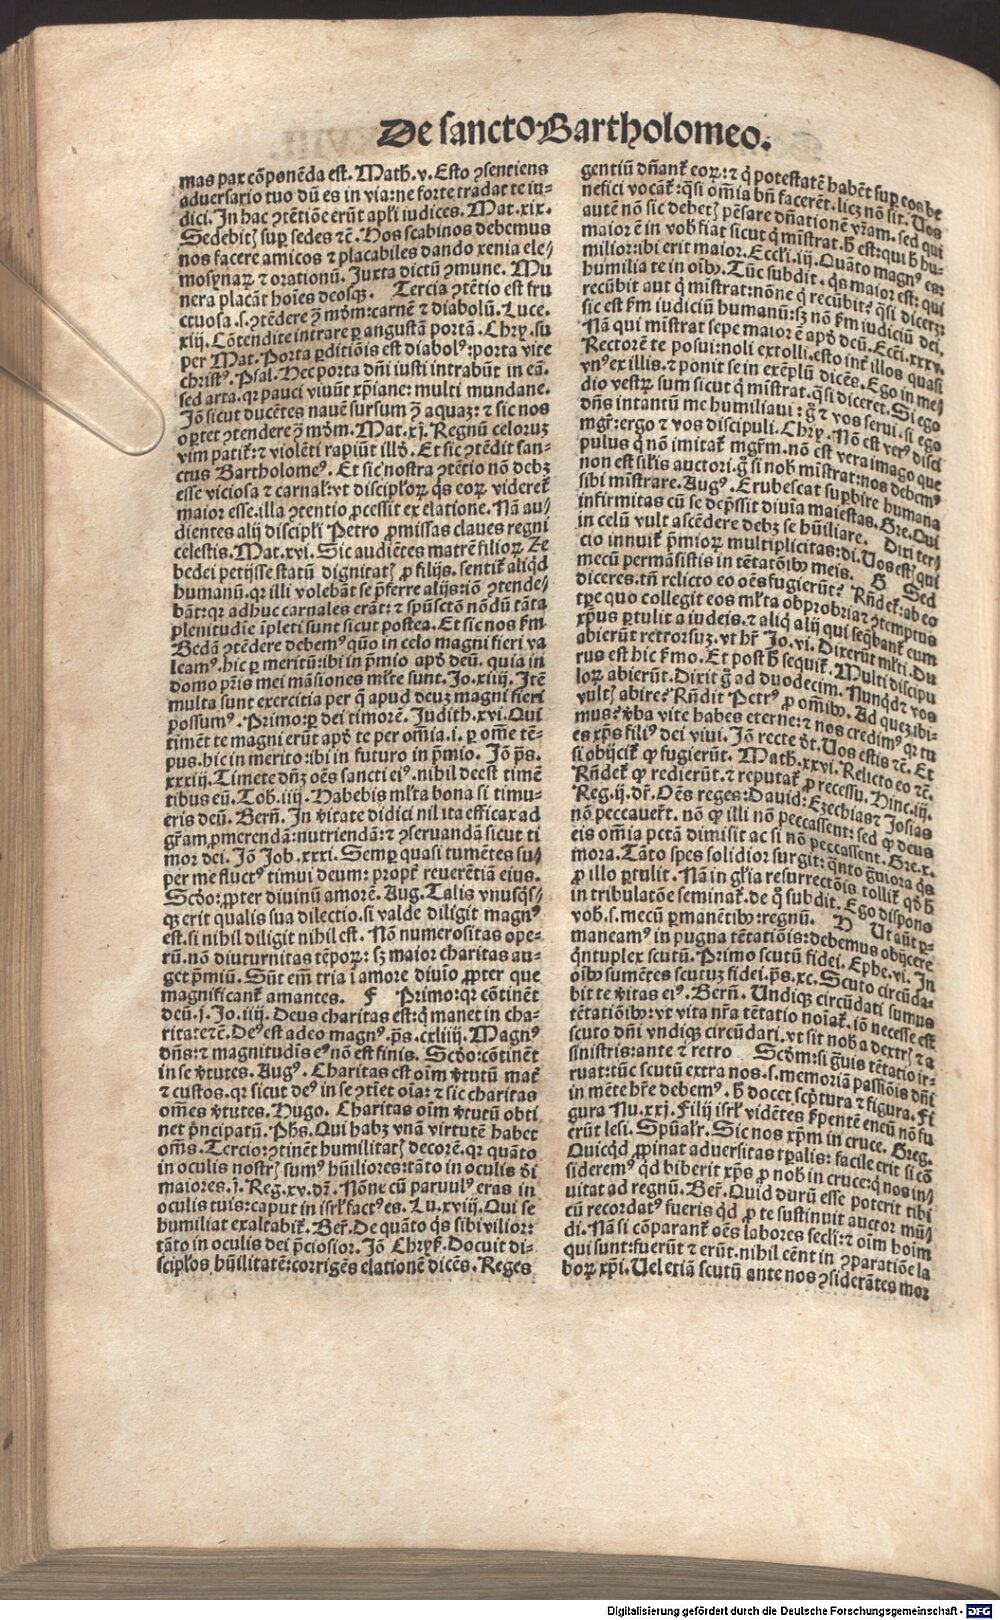 De sancto Bartholomeo.
mas pax cōponēda est. Math̄. v. Esto ꝯsentiens
aduersario tuo dū es in via: ne forte tradat te iu⸗
dici. In hac ꝯtētiōe erūt apl̄i iudices. Mat. xix.
Sedebitꝭ suꝑ sedes ⁊c̄. Hos scabinos debemus
nos facere amicos ⁊ placabiles dando xenia ele⸗
mosynaꝝ ⁊ orationū. Juxta dictū ꝯmune. Mu
nera placāt hoīes deosqꝫ. Tercia ꝯtētio est fru
ctuosa .s. ꝯtēdere ꝯ̄ mūdm̄: carnē ⁊ diabolū. Luce.
xiij. Cōtendite intrare ꝑ angustā portā. Chry. su
per Mat. Porta ꝑditiōis est diabolꝰ: porta vite
christꝰ. Psal. Hec porta dn̄i iusti intrabūt in eā.
sed arta. qꝛ pauci viuūt xp̄iane: multi mundane.
Jō sicut ducētes nauē sursum ꝯ̄ aquaꝫ: ⁊ sic nos
oꝑtet ꝯtendere ꝯ̄ mūdm̄. Mat. xj. Regnū celoruꝫ
vim patit̄: ⁊ violēti rapiūt illd̄. Et sic ꝯtēdit san⸗
ctus Bartholomeꝰ. Et sic nostra ꝯtētio nō debꝫ
esse viciosa ⁊ carnal̄: vt discipl̄oꝝ qͥs eoꝝ videret̄
maior esse. illa ꝯtentio ꝓcessit ex elatione. Nā au⸗
dientes alij discipl̄i Petro ꝓmissas claues regni
celestis. Mat. xvi. Sic audiētes matrē filioꝝ Ze
bedei petijsse statū dignitatꝭ ꝓ filijs. sentit̄ aliqͥd
humanū. qꝛ illi volebāt se p̄ferre alijs: iō ꝯtende⸗
bāt: qꝛ adhuc carnales erāt: ⁊ sp̄uscto nōdū tāta
ꝑlenitudīe īpleti sunt sicut postea. Et sic nos sm̄
Bedā ꝯtēdere debemꝰ quō in celo magni fieri va
leamꝰ. hic ꝑ meritū: ibi in p̄mio apd̄ deū. quia in
domo pr̄is mei māsiones ml̄te sunt. Jo. xiiij. Itē
multa sunt exercitia per q̄ apud deuꝫ magni fieri
possumꝰ. Primo: ꝑ dei timorē. Judith. xvi. Qui
timēt te magni erūt apd̄ te per om̄ia. i. ꝑ om̄e tē⸗
pus. hic in merito: ibi in futuro in p̄mio. Jō p̄s.
xxxiij. Timete dn̄ꝫ oēs sancti eiꝰ. nihil deest timē
tibus eū. Tob̄. iiij. Habebis ml̄ta bona si timu⸗
eris deū. Bern̄. In v̄itate didici nil ita efficax ad
gr̄am ꝓmerendā: nutriendā: ⁊ ꝯseruandā sicut ti
mor dei. Jō Job. xxxi. Semꝑ quasi tumētes su⸗
per me fluctꝰ timui deum: propt̄ reuerētiā eius.
Scd̄o: ꝓpter diuinū amorē. Aug. Talis vnusqͥs⸗
qꝫ erit qualis sua dilectio. si valde diligit magnꝰ
est. si nihil diligit nihil est. Nō numerositas ope⸗
rū. nō diuturnitas tēpoꝝ: sꝫ maior charitas au⸗
get p̄miū. Sūt em̄ tria ī amore diuīo ꝓpter que
magnificant̄ amantes. F Primo: qꝛ cōtinēt
deū. j. Jo. iiij. Deus charitas est: q̄ manet in cha⸗
ritate ⁊c̄. Deꝰ est adeo magnꝰ. p̄s. cxliiij. Magnꝰ
dn̄s: ⁊ magnitudīs eꝰ nō est finis. Scd̄o: cōtinēt
in se v̄tutes. Augꝰ. Charitas est oīm v̄tutū mat̄
⁊ custos. qꝛ sicut deꝰ in se ꝯtiēt oīa: ⁊ sic charitas
om̄es v̄tutes. Hugo. Charitas oīm v̄tutū obti
net p̄ncipatū. Ph̄s. Qui habꝫ vnā virtutē habet
om̄s. Tercio: ꝯtinēt humilitatꝭ decorē. qꝛ quāto
in oculis nostrꝭ sumꝰ hūiliores: tāto in oculis d̄i
maiores. j. Reg. xv. dꝛ̄. Nōne cū paruulꝰ eras in
oculis tuis: caput in isrl̄ factꝰ es. Lu. xviij. Qui se
humiliat exaltabit̄. Ber̄. De quāto qͥs sibi vilior:
tāto in oculis dei p̄ciosior. Jō Chrys̄. Docuit di⸗
scipl̄os hūilitatē: corrigēs elationē dicēs. Reges
gentiū dn̄ant̄ eoꝝ: ⁊ q̄ potestatē habēt suꝑ eos be
nefici vocāt̄: qͣsi om̄ia bn̄ facerēt. licꝫ nō sit. Uos
autē nō sic debetꝭ pēsare dn̄ationē vr̄am. sed qui
maior ē in vob̄ fiat sicut q̄ mīstrat. h̄ est: qui h̄ hu⸗
milior: ibi erit maior. Eccl̄i. iij. Quāto magnꝰ es:
humilia te in oībꝰ. Tūc subdit. qͥs maior est: qui
recūbit aut q̄ mīstrat: nōne q̄ recūbit? qͣsi dicerꝫ:
sic est sm̄ iudiciū humanū: sꝫ nō sm̄ iudiciū dei.
Nā qui mīstrat sepe maior ē apd̄ deū. Eccl̄i. xxxv.
Rectorē te posui: noli extolli. esto int̄ illos quasi
vnꝰ ex illis. ⁊ ponit se in exēplū dicēs. Ego in me⸗
dio vestꝝ sum sicut q̄ mīstrat. qͣsi diceret. Si ego
dn̄s intantū me humiliaui: g̊ ⁊ vos serui. si ego
mgr̄: ergo ⁊ vos discipuli. Chry. Nō est verꝰ disci
pulus q̄ nō imitat̄ mgr̄m. nō est vera imago que
non est sil̄is auctori. g̊ si nob̄ mīstrat: nos debemꝰ
sibi mīstrare. Augꝰ. Erubescat suꝑbire humana
infirmitas cū se dep̄ssit diuīa maiestas. Gre. Qui
in celū vult ascēdere debꝫ se hūiliare. Dixi ter⸗
cio innuit̄ p̄mioꝝ multiplicitas: di. Uos estꝭ qui
mecū permāsistis in tētatōibꝰ meis. G Sed
diceres. tn̄ relicto eo oēs fugierūt? Rn̄det̄: ab eo
tꝑe quo collegit eos ml̄ta obprobria ⁊ ꝯtemptus
xp̄us ꝑtulit a iudeis. ⁊ aliq̄ alij qui seq̄bant̄ eum
abierūt retrorsuꝫ. vt hr̄ Jo. vi. Dixerūt ml̄ti. Du
rus est hic s̄mo. Et post h̄ sequit̄. Multi discipu
loꝝ abierūt. Dixit g̊ ad duodecim. Nunqd̄ ⁊ vos
vultꝭ abire? Rn̄dit Petrꝰ ꝓ om̄ibꝰ. Ad queꝫ ibi⸗
mus? v̄ba vite habes eterne: ⁊ nos credimꝰ qꝛ tu
es xp̄s filiꝰ dei viui. Jō recte dr̄. Uos estis ⁊c̄. Et
si obijcit̄ ꝙ fugierūt. Math̄. xxvi. Relicto eo ⁊c̄.
Rn̄det̄ ꝙ redierūt. ⁊ reputat̄ ꝓ recessu. Hinc. iij.
Reg. ij. dr̄. Oēs reges: Dauid: Ezechias ⁊ Josias
nō peccauert̄. nō ꝙ illi nō peccassent: sed ꝙ deus
eis om̄ia pctā dimisit ac si nō peccassent. Gre. x.
mora. Tāto spes solidior surgit: qͣnto gͣuiora qͥs
ꝓ illo ꝑtulit. Nā in gl̄ia resurrectōis tollit̄ qd̄ h̄
in tribulatōe seminat̄. de q̊ subdit. Ego dispono
vob̄. s. mecū ꝑmanētibꝰ: regnū. H Ut aūt ꝑ⸗
maneamꝰ in pugna tētatiōis: debemus obijcere
qͥntuplex scutū. Primo scutū fidei. Ephe. vi. In
oībꝰ sumētes scutuꝫ fidei. p̄s. xc. Scuto circūda⸗
bit te v̄itas eiꝰ. Bern̄. Undiqꝫ circūdati sumus
tētatiōibꝰ: vt vita nr̄a tētatio noīat̄. iō necesse est
scuto dn̄i vndiqꝫ circūdari. vt sit nob̄ a dextrꝭ ⁊ a
sinistris: ante ⁊ retro Scd̄m: si gͣuis tētatio ir⸗
ruat: tūc scutū extra nos. s. memoriā passiōis dn̄i
in mēte hr̄e debemꝰ. h̄ docet sc̄ptura ⁊ figura. Fi
gura Nu. xxj. Filij isrl̄ vidētes s̄pentē eneū nō fu
erūt lesi. Spūalr̄. Sic nos xp̄m in cruce. Greg.
Quicqͥd ꝓpinat aduersitas tꝑalis: facile erit si cō
sideremꝰ qͥd biberit xp̄s ꝓ nob̄ in cruce: q̄ nos in⸗
uitat ad regnū. Ber̄. Quid durū esse poterit tibi
cū recordatꝰ fueris qͥd ꝓ te sustinuit auctor mū⸗
di. Nā si cōparant̄ oēs labores secl̄i: ⁊ oīm hoīm
qui sunt: fuerūt ⁊ erūt. nihil eēnt in ꝯparatiōe la
boꝝ xp̄i. Uel etiā scutū ante nos ꝯsiderātes mor
Digitalisierung gefördert durch die Deutsche Forschungsgemeinschaft - DFG